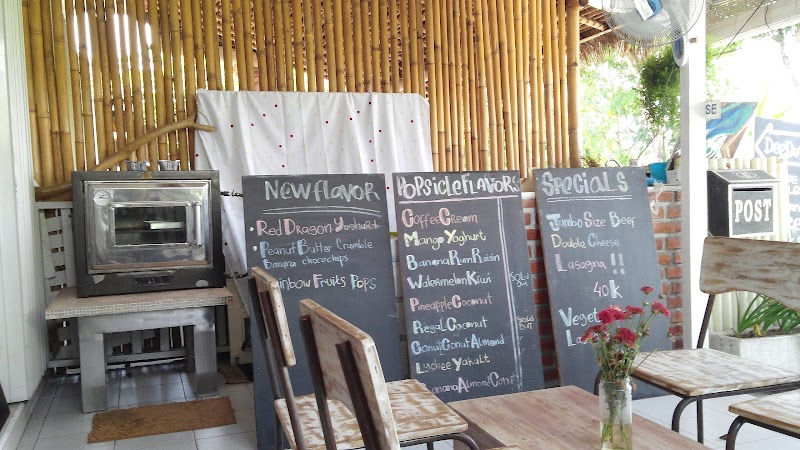 NEW FLAVOR
RED DRAGON YOGHURT
PEANUT BUTTER CRUMBLE
BANANA CHOCOCHIPS
FRUITS POPS
POPSICLE FLAVORS
COFFEE CREAM
MANGO YOGHURT
BANANA RUM RAISIN
WATERMELON KIWI
SOLD OUT
PINEAPPLE COCONUT
REGAL COCONUT
SOLD OUT
COCONUT ALMOND
LYCHEE YAKULT
ALMOND
SPECIALS
JUMBO SIZE BEEF
DOUBLE CHEESE
LASAGNA !!
40K
POST
SE